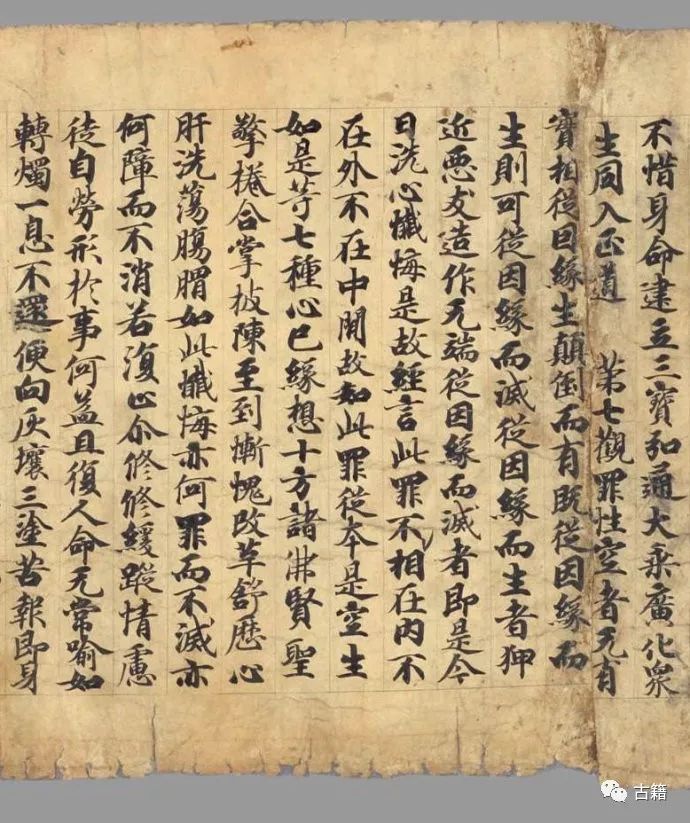 不惜身命建立三寶弘通大乘廣化衆
生同入正道 第七觀罪性空者无有
實相從因緣生顛倒而有既從因緣而
生則可從因緣而滅從因緣而生者狎
近惡友造作无端從因緣而滅者即是今
日洗心懺悔是故經言此罪不相在內不
在外不在中間故如此罪從本是空生
如是等七種心已緣想十方諸佛賢聖
擎棬合掌披陳至到慚愧改革舒歷心
肝洗蕩腸𦝩如此懺悔亦何罪而不滅亦
何障而不消若復止尒修修緩蹤情慮
徒自勞形於事何益且復人命无常喻如
轉燭一息不還便向灰壤三塗苦報即身
古籍